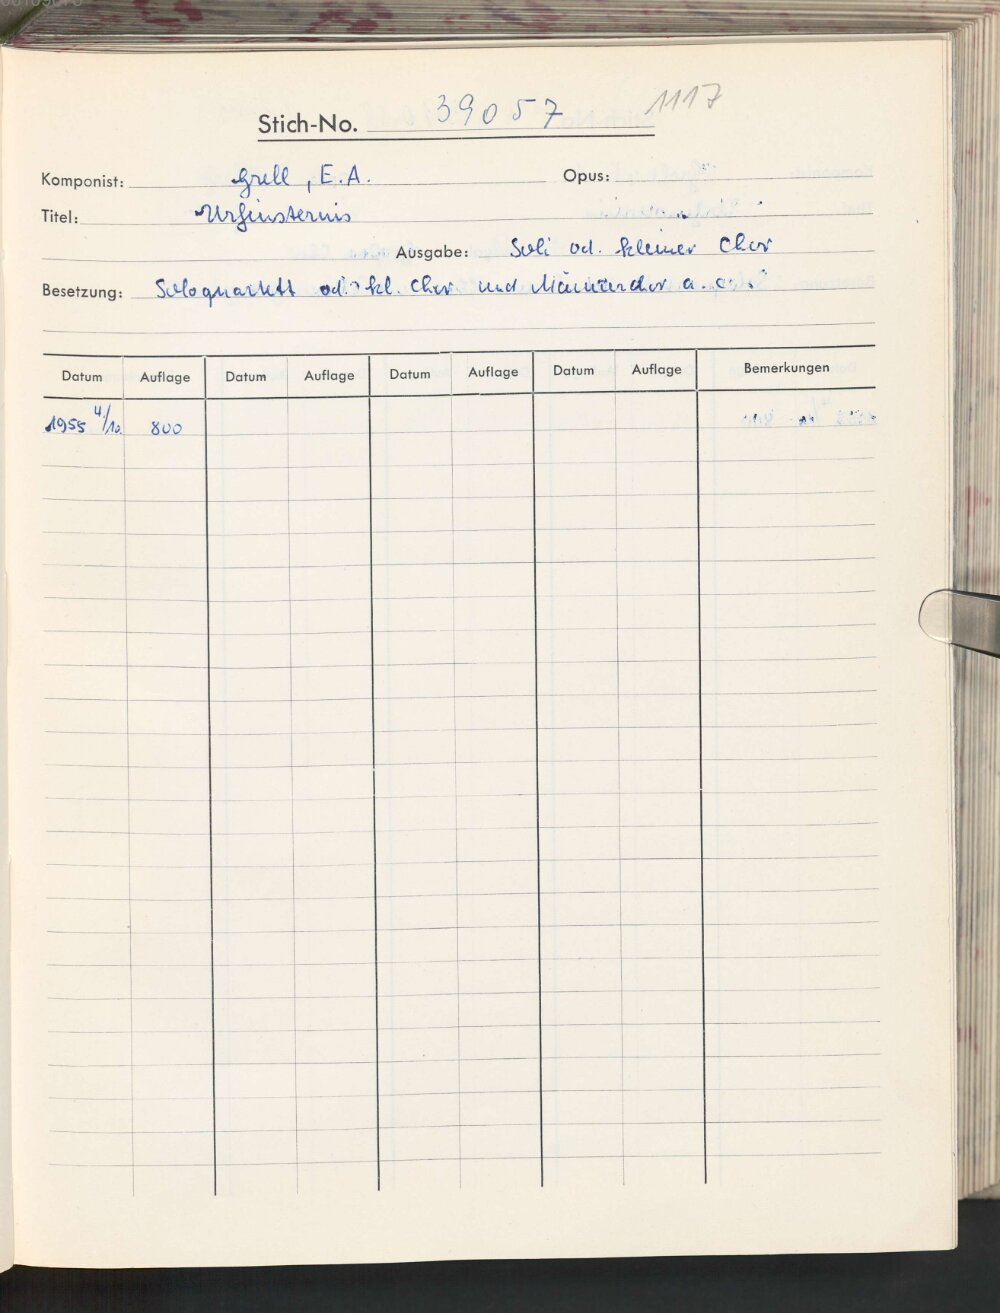 Stich-No. 39057 1117
Komponist: Grell, E.A. Opus:
Titel: Urfinsternis
Ausgabe: Soli od. kleiner Chor
Besetzung: Soloquartett od. kl. Chor und Männerchor a. c.
Datum Auflage Datum Auflage Datum Auflage Datum Auflage Bemerkungen
1955 4/10. 800